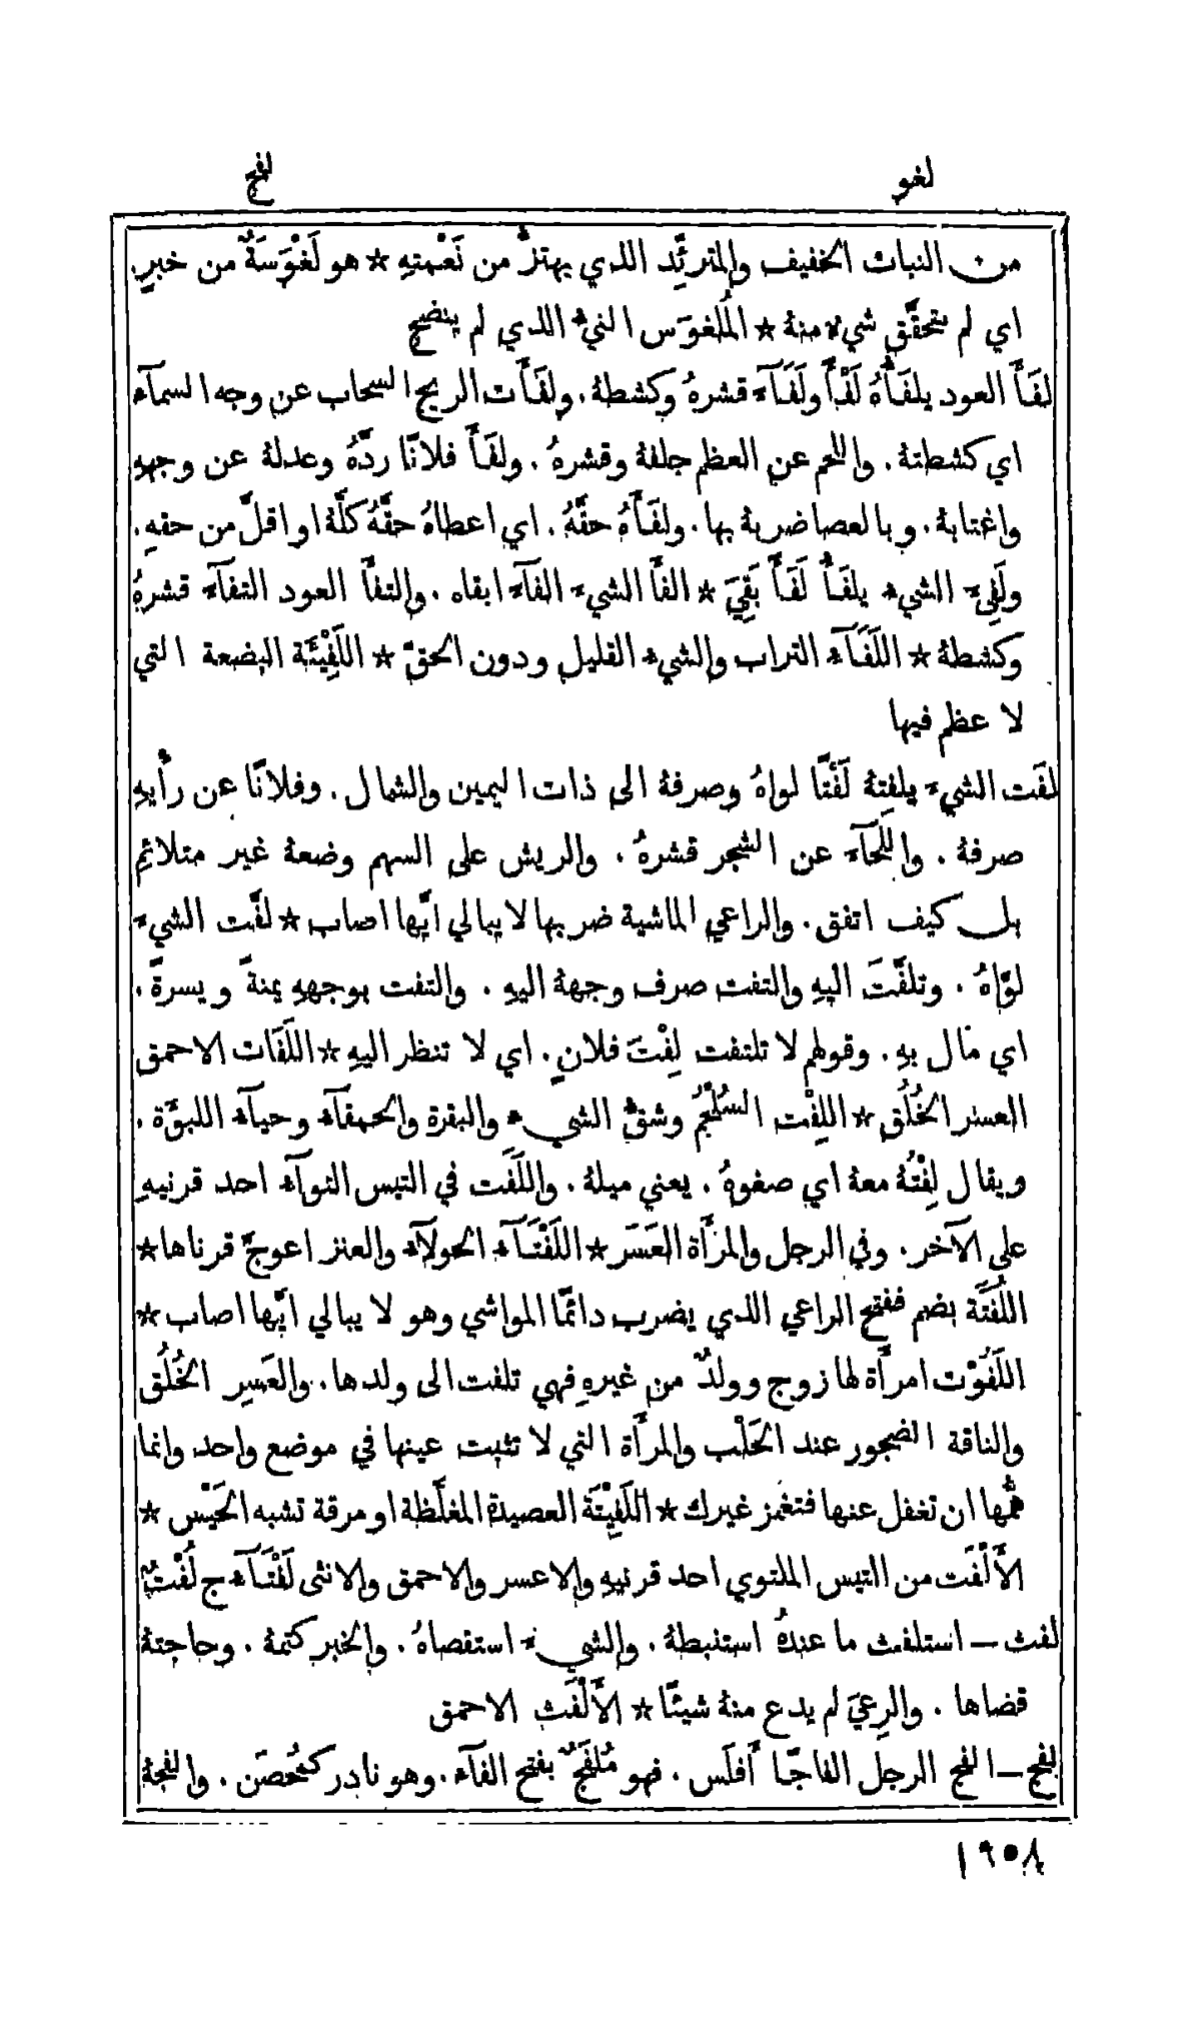 لغو لفج
من النبات الخفيف والمترئِّد الذي يهتزُّ من نَعْمتهِ * هو لَغْوَسَةٌ من خبرٍ.
اي لم يتحقَّق شيءٌ منهُ * المُلغوَس النيءُ الذي لم ينضج
لفَأَ العود يلفَأُهُ لَفْأً ولَفَآءً قشرهُ وكشطهُ. ولفَأَت الريح السحاب عن وجه السمآء
اي كشطتهُ. واللحم عن العظم جلفهُ وقشرهُ. ولفَأَ فلانًا ردَّهُ وعدلهُ عن وجههِ
واغتابهُ. وبالعصا ضربهُ بها. ولفَأَهُ حقَّهُ. اي اعطاهُ حقَّهُ كلَّهُ او اقلَّ من حقهِ.
ولَفِئَ الشيءُ يلفَأُ لَفَأً بَقِيَ * الفأَ الشيءَ الفآءً ابقاه. والتفأَ العود التفآءً قشرهُ
وكشطهُ * اللَفَآءُ التراب والشيءُ القليل ودون الحقّ * اللَفِيْئَة البضعة التي
لا عظم فيها
لفَت الشيءَ يلفتهُ لَفْتًا لواهُ وصرفهُ الى ذات اليمين والشمال. وفلانًا عن رأيهِ
صرفهُ. واللَحَآءَ عن الشجر قشرهُ. والريش على السهم وضعهُ غير متلائمٍ
بل كيف اتفق. والراعي الماشية ضربها لا يبالي ايَّها اصاب * لفَّت الشيءَ
لوَّاهُ. وتلفَّتَ اليهِ والتفت صرف وجههُ اليهِ. والتفت بوجههِ يمنةً ويسرةً.
اي مال بهِ. وقولهم لا تلتفت لِفْتَ فلانٍ. اي لا تنظر اليهِ * اللَفَات الاحمق
العسر الخُلُق * اللِفْت السَلْجَمُ وشقُّ الشيءِ والبقرة والحمقآءُ وحيآءُ اللبوَّة.
ويقال لِفْتُهُ معهُ اي صغوهُ. يعني ميلهُ. واللَفَت في التيس التوآءُ احد قرنيهِ
على الآخر. وفي الرجل والمرأَة العَسَر * اللَفْتَآءُ الحولآءُ والعنز اعوجَّ قرناها *
اللُفَتَة بضم ففتح الراعي الذي يضرب دائمًا المواشي وهو لا يبالي ايَّها اصاب *
اللَفُوْت امرأَة لها زوج وولدٌ من غيرهِ فهي تلفت الى ولدها. والعَسِر الخُلُق
والناقة الضجور عند الحَلْب والمرأَة التي لا تثبت عينها في موضع واحد وانما
همُّها ان تغفل عنها فتغمز غيرك * اللَفِيْتَة العصيدة المغلَّظة او مرقة تشبه الحَيْس *
الأَلْفَت من التيس الملتوي احد قرنيهِ والاعسر والاحمق والانثى لَفْتَآءُ ج لُفْتٌ
لفث — استلفث ما عندهُ استنبطهُ. والشيءَ استقصاهُ. والخبر كتمهُ. وحاجتهُ
قضاها. والرِعيَ لم يدع منهُ شيئًا * الأَلْفَث الاحمق
لفج — الفج الرجل الفاجًا أَفلَس. فهو مُلفَجٌ بفتح الفآء. وهو نادر كمُحْصَن. والفجهُ
١٩٥٨